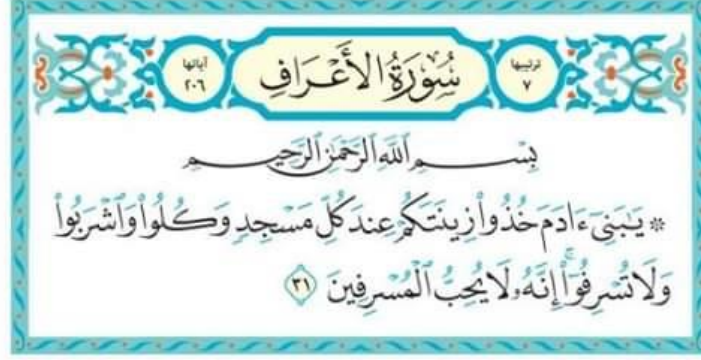 ترتيبها ٧ سُورَةُ الأَعْرَافِ آياتها ٢٠٦
بِسْمِ ٱللَّهِ ٱلرَّحْمَٰنِ ٱلرَّحِيمِ
۞ يَٰبَنِىٓ ءَادَمَ خُذُوا۟ زِينَتَكُمْ عِندَ كُلِّ مَسْجِدٍ وَكُلُوا۟ وَٱشْرَبُوا۟
وَلَا تُسْرِفُوٓا۟ ۚ إِنَّهُۥ لَا يُحِبُّ ٱلْمُسْرِفِينَ ٣١